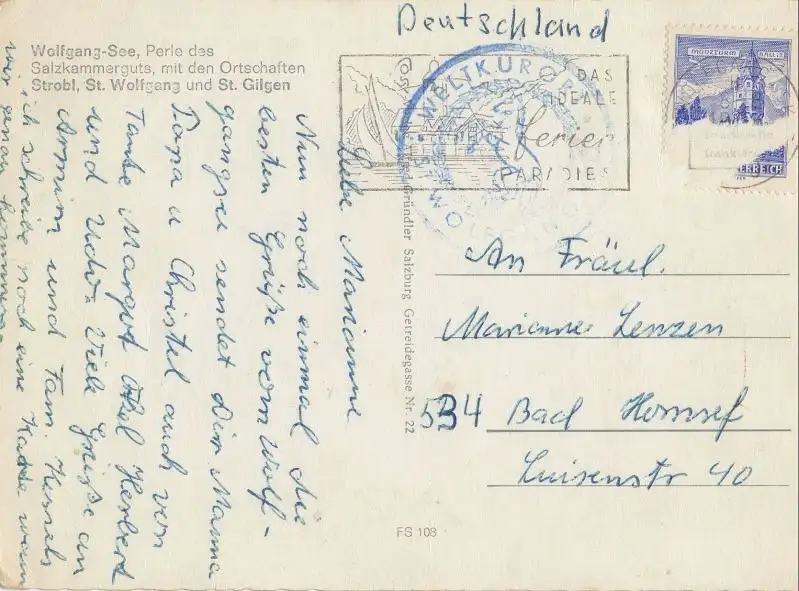 Deutschland
Wolfgang-See, Perle des
Salzkammerguts, mit den Ortschaften
Strobl, St. Wolfgang und St. Gilgen
DAS
IDEALE
Ferien
PARADIES
WELTKURORT
MÜNZTURM
HALL
ERREICH
Liebe Marianne
Nun noch einmal die
besten Grüße vom Wolf-
gangsee sendet Dir Mama
Papa u Christel auch von
Tante Margot Onkel Herbert
und Udo. Viele Grüße an
Armin und Fam. Hessels
ich schreibe noch eine Karte wann
wir genau kommen.
Gründler Salzburg Getreidegasse Nr. 22
An Fräul.
Marianne Lenzen
534 Bad Honnef
Luisenstr 40
FS 103